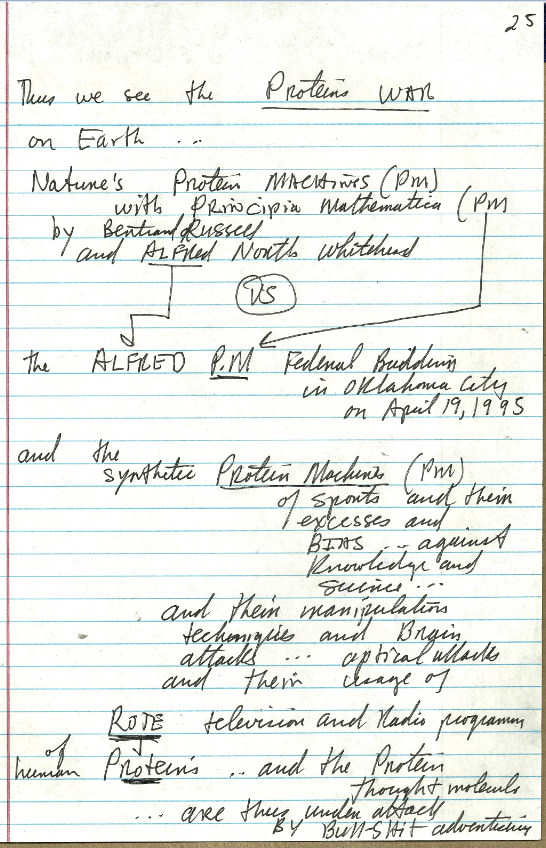 25
Thus we see the Proteins WAR
on Earth ...
Nature's Protein MACHINES (PM)
with Principia Mathematica (PM
by Bertrand Russell
and ALFRED North Whitehead
VS
the ALFRED P.M Federal Building
in Oklahoma City
on April 19, 1995
and the
synthetic Protein Machines (PM)
of sports and their
excesses and
BIAS ... against
Knowledge and
Science ...
and their manipulation
techniques and Brain
attacks ... optical attacks
and their usage of
ROTE television and Radio programm
of
human Proteins .. and the Protein
thought molecule
... are thus under attack
BY Bull-Shit advertising